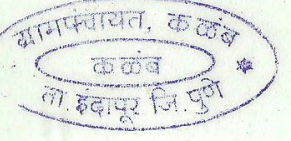 ग्रामपंचायत, कळंब
कळंब
ता. इंदापूर जि. पुणे